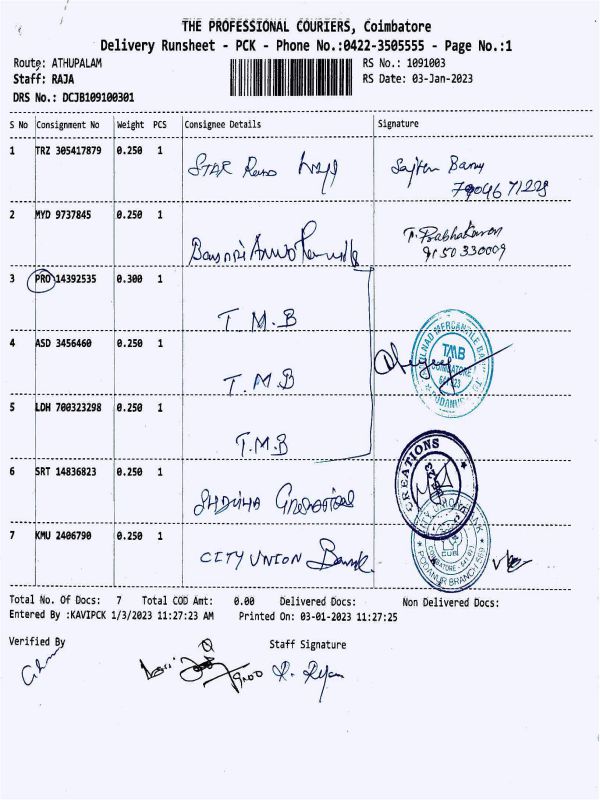 THE PROFESSIONAL COURIERS, Coimbatore
Delivery Runsheet - PCK - Phone No.:0422-3505555 - Page No.:1
Route: ATHUPALAM
RS No.: 1091003
Staff: RAJA
RS Date: 03-Jan-2023
DRS No.: DCJB109100301
S No Consignment No Weight PCS Consignee Details Signature
1 TRZ 305417879 0.250 1
STAR
2 MYD 9737845 0.250 1
T. Prabhakaran
9150330009
3 PRO 14392535 0.300 1
T.M.B
4 ASD 3456460 0.250 1
T.M.B
TMB
5 LDH 700323298 0.250 1
T.M.B
6 SRT 14836823 0.250 1
CREATIONS
7 KMU 2406790 0.250 1
CITY UNION Bank
CITY UNION BANK
CUB
PODANUR BRANCH
Total No. Of Docs: 7 Total COD Amt: 0.00 Delivered Docs: Non Delivered Docs:
Entered By :KAVIPCK 1/3/2023 11:27:23 AM Printed On: 03-01-2023 11:27:25
Verified By Staff Signature